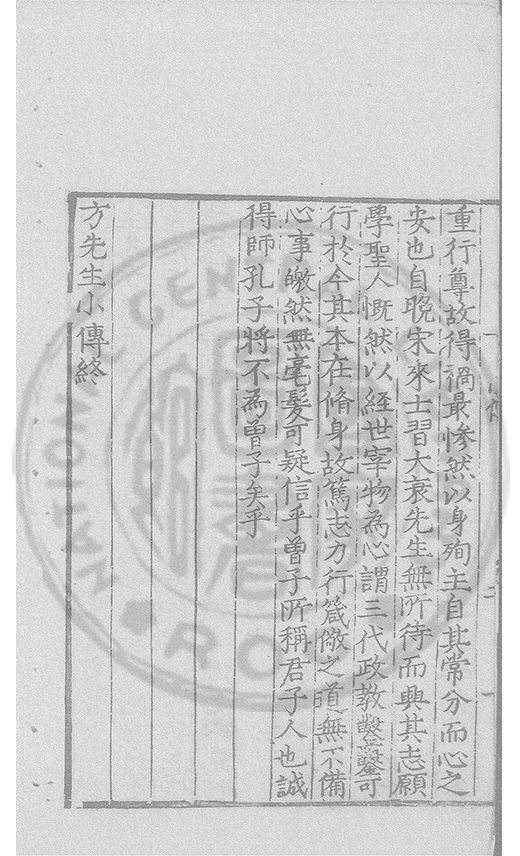 重行尊故得禍最慘然以身殉主自其常分而心之
安也自晚宋來士習大衰先生無所待而興其志願
學聖人慨然以經世宰物為心謂三代政教鑿鑿可
行於今其本在脩身故篤志力行箴儆之道無不備
心事皦然無毫髮可疑信乎曾子所稱君子人也誠
得師孔子將不為曾子矣乎
方先生小傳終